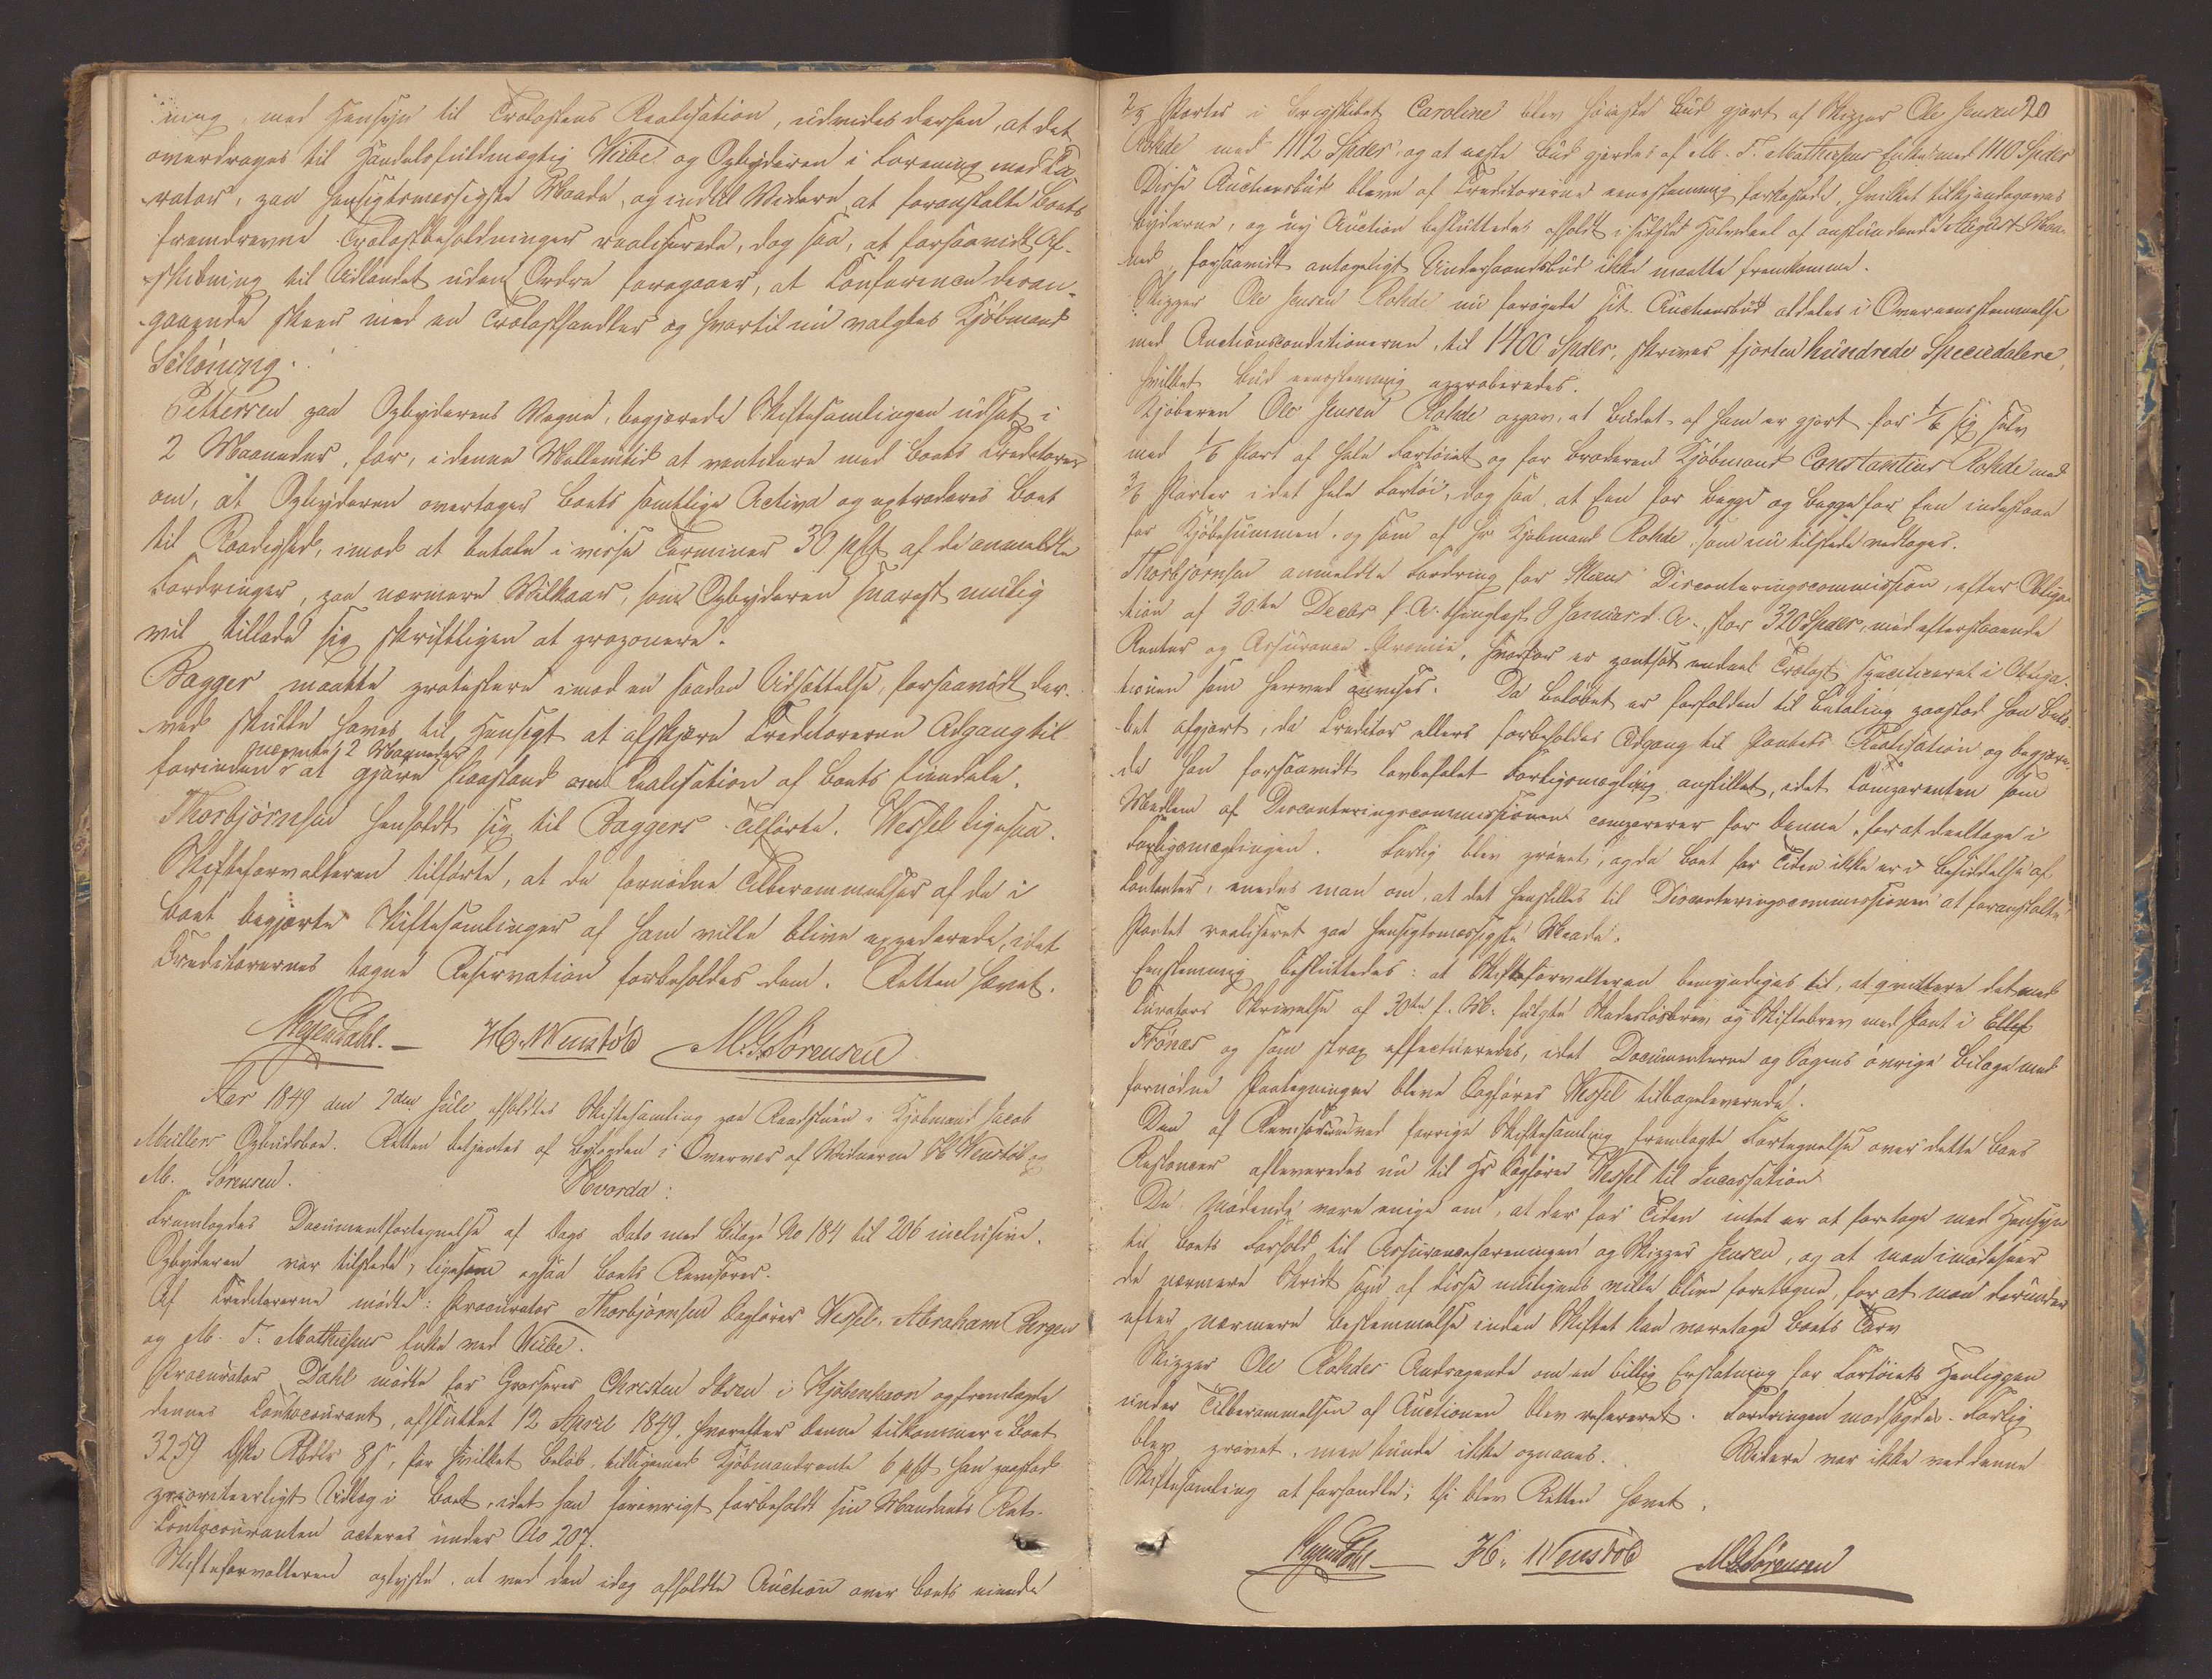 ning, med Hensyn til Trælastens Realisation, udvides dersen, at det
overdrages til Handelsfuldmægtig Wiibe og Opbyderen i Forening med Cu-
rator, paa hensigtsmessigste Maade, og indtil Videre, at foranstalte Boets
fremdrevne Trælastbeholdninger realiserede, dog saa, at forsaavidt Af-
skibning til Udlandet uden Ordre foregaaer, at Conference deran-
gaaende skeer med en Trælasthandler og hvortil nu valgtes Kjöbmand
Schöning.
Pettersen paa Opbyderens Vegne, begjærede Skiftesamlingen udsat i
2 Maaneder, for, i denne Mellemtid at ventilere med Boets Creditorer
om, at Opbyderen overtager Boets samtlige Activa og extraderes Boet
til Raadighed, imod at betale i visse Terminer 30 pCt af de anmeldte
Fordringer, paa nærmere Vilkaar, som Opbyderen snarest mulig
vil tillade sig skriftligen at proponere.
Bagger maatte protestere imod en saadan Udsættelse, forsaavidt der-
ved skulde haves til Hensigt at afskjære Creditorerne Adgang til
forinden nævnte 2 Maaneder at gjøre Paastand om Realisation af Boets Eiendele.
Thorbjörnsen henholdt sig til Baggers Tilförte. Wessel ligesaa.
Skifteforvalteren tilförte, at de fornödne Tilberammelser af de i
Boet begjærte Skiftesamlinger af ham ville blive expederede, idet
Creditorernes tagne Reservation forbeholdes dem. Retten hævet.
Meyendahl. H. Wenstöb M. Sörensen
Aar 1849 den 2den Juli afholdtes Skiftesamling paa Raadstuen i Kjöbmand Jacob
Müllers Opbudsboe. Retten betjentes af Byfogden i Overvær af Vidnerne H. Wenstöb og
M. Sörensen. Hvorda:
Fremlagdes Documentfortegnelse af Dags Dato med Bilage No 184 til 206 inclusive.
Opbyderen var tilstede, ligesom ogsaa Boets Revisorer.
Af Creditorerne mödte: Procurator Thorbjörnsen Sagförer Wessel. Abraham Bergen
og M. T. Mathiesens Enke ved Wiibe.
Procurator Dahl mödte for Grosserer Christen Ibsen i Kjöbenhavn og fremlagde
dennes Contocourant, afsluttet 12 April 1849, hvorefter denne tilkommer i Boet
3259 dske Rbdlr 8 s, for hvilket Belöb, tilligemed Kjöbmandsrente 6 pCt han paastod
prioriteerligt Udlæg i Boet, idet han forövrigt forbeholdt sin Mandants Ret.
Contocouranten acteres under No 207.
Skifteforvalteren oplyste, at ved den idag afholdte Auction over Boets eiende
20
2/3 Parter i Brigskibet Caroline blev höieste Bud gjort af Skipper Ole Jensen
Rohde med 1112 Spdlr, og at næste Bud gjordes af M. T. Mathiesens Enke med 1110 Spdlr
Disse Auctionsbud bleve af Creditorerne eenstemmig forkastede, hvilket tilkjendegaves
byderne, og ny Auction besluttedes afholdt i sidste Halvdeel af anstundende August Maa-
ned, forsaavidt antageligt Underhaandsbud ikke maatte fremkomme.
Skipper Ole Jensen Rohde nu forögede sit Auctionsbud aldeles i Overeensstemmelse
med Auctionsconditionerne, til 1400 Spdlr, skriver fjorten hundrede Speciedalere,
hvilket Bud eenstemmig approberedes.
Kjöberen Ole Jensen Rohde opgav, at Budet af ham er gjort for 1/6 sig selv
med 1/6 Part af hele Fartöiet og for Broderen Kjöbmand Constantius Rohde med
3/6 Parter i det hele Fartöi, dog saa, at Een for Begge og Begge for Een indestaae
for Kjöbesummen, og som af Hr Kjöbmand Rohde, som nu tilstede vedtages.
Thorbjörnsen anmeldte Fordring for Skiens Disconteringscommission, efter Obliga-
tion af 30te Decbr f. A. thinglæst 9 Januar d. A., stor 320 Spdlr, med efterstaaende
Renter og Assurance Præmie, hvorfor er pantsat endeel Trælast specificeret i Obliga-
tionen som herved anvises. Da Belöbet er forfalden til Betaling paastod han Belö-
bet afgjort, da Creditor ellers forbeholdes Adgang til Pantets Realisation og begjære-
de han forsaavidt lovbefalet Forligsmægling anstillet, idet Comparenten som
Medlem af Disconteringscommissionen comparerer for denne, for at deeltage i
Forligsmæglingen. Forlig blev prövet, og da Boet for Tiden ikke er i Besiddelse af
Contanter, enedes man om, at det henstilles til Disconteringscommissionen at foranstalte
Pantet realiseret paa hensigtsmæssigste Maade.
Eenstemmig besluttedes: at Skifteforvalteren bemyndiges til, at qvittere det med
Curators Skrivelse af 30te f. M. fulgte Skadeslösbrev og Skiftebrev med Pant i Ellef
Frönæs og som strax effectueredes, idet Documenterne og Sagens övrige Bilage med
fornödne Paategninger bleve Sagförer Wessel tilbageleverede.
Den af Revisorerne ved forrige Skiftesamling fremlagte Fortegnelse over dette Boes
Restancer afleveredes nu til Hr Sagförer Wessel til Incassation
De Mödende vare enige om, at der for Tiden intet er at foretage med Hensyn
til Boets Forhold til Assuranceforeningen og Skipper Jensen, og at man imödeseer
de nærmere Skridt som af disse muligens ville blive foretagne, for at man derunder
efter nærmere Bestemmelse inden Skiftet kan varetage Boets Tarv
Skipper Ole Rohdes Andragende om en billig Erstatning for Fartöiets Henliggen
under Tilberammelsen af Auctionen blev refereret. Fordringen modsagdes. Forlig
blev prövet, men kunde ikke opnaaes. Videre var ikke ved denne
Skiftesamling at forhandle; thi blev Retten hævet.
Meyendahl H. Wenstöb M. Sörensen